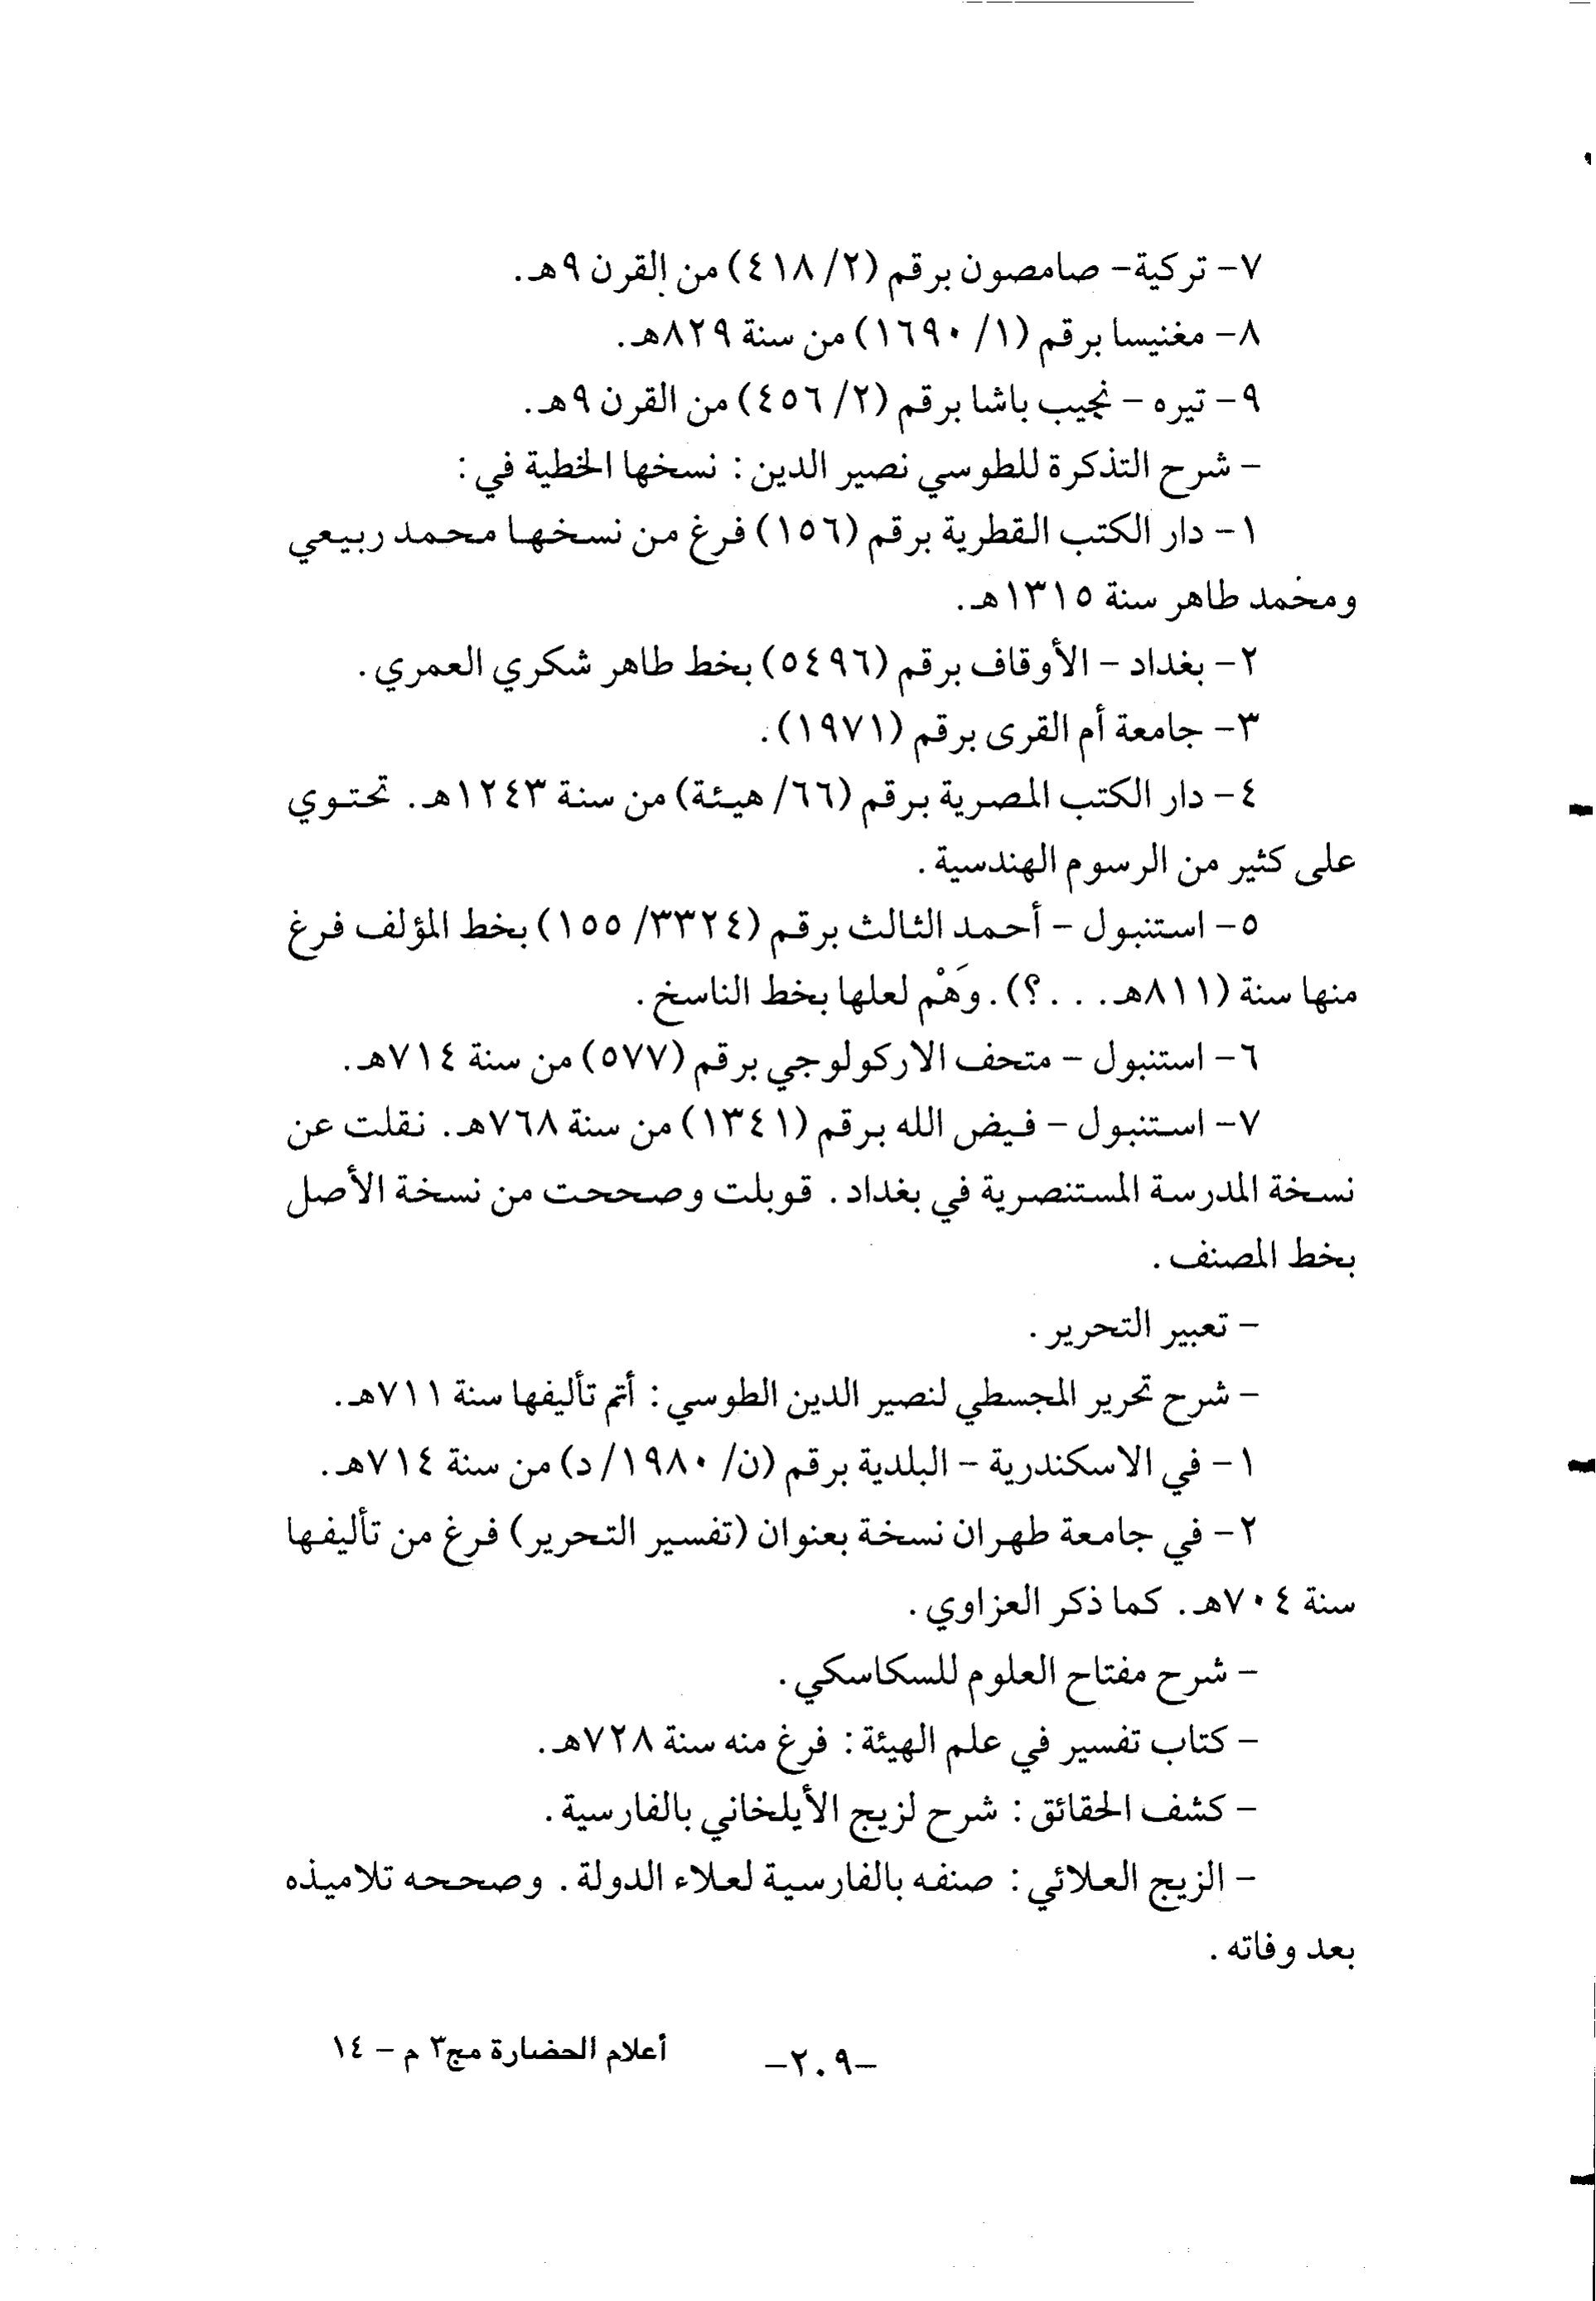 ٧- تركية- صامصون برقم (٢/ ٤١٨) من القرن ٩هـ.
٨- مغنيسا برقم (١/ ١٦٩٠) من سنة ٨٢٩هـ.
٩- تيره - نجيب باشا برقم (٢/ ٤٥٦) من القرن ٩هـ.
- شرح التذكرة للطوسي نصير الدين: نسخها الخطية في:
١- دار الكتب القطرية برقم (١٥٦) فرغ من نسخها محمد ربيعي
ومحمد طاهر سنة ١٣١٥هـ.
٢- بغداد - الأوقاف برقم (٥٤٩٦) بخط طاهر شكري العمري.
٣- جامعة أم القرى برقم (١٩٧١).
٤- دار الكتب المصرية برقم (٦٦/ هيئة) من سنة ١٢٤٣هـ. تحتوي
على كثير من الرسوم الهندسية.
٥- استنبول - أحمد الثالث برقم (٣٣٢٤/ ١٥٥) بخط المؤلف فرغ
منها سنة (٨١١هـ...؟). وَهْم لعلها بخط الناسخ.
٦- استنبول - متحف الاركولوجي برقم (٥٧٧) من سنة ٧١٤هـ.
٧- استنبول - فيض الله برقم (١٣٤١) من سنة ٧٦٨هـ. نقلت عن
نسخة المدرسة المستنصرية في بغداد. قوبلت وصححت من نسخة الأصل
بخط المصنف.
- تعبير التحرير.
- شرح تحرير المجسطي لنصير الدين الطوسي: أتم تأليفها سنة ٧١١هـ.
١- في الاسكندرية - البلدية برقم (ن/ ١٩٨٠/ د) من سنة ٧١٤هـ.
٢- في جامعة طهران نسخة بعنوان (تفسير التحرير) فرغ من تأليفها
سنة ٧٠٤هـ. كما ذكر العزاوي.
- شرح مفتاح العلوم للسكاسكي.
- كتاب تفسير في علم الهيئة: فرغ منه سنة ٧٢٨هـ.
- كشف الحقائق: شرح لزيج الأيلخاني بالفارسية.
- الزيج العلائي: صنفه بالفارسية لعلاء الدولة. وصححه تلاميذه
بعد وفاته.
-٢٠٩- أعلام الحضارة مج٣ م - ١٤